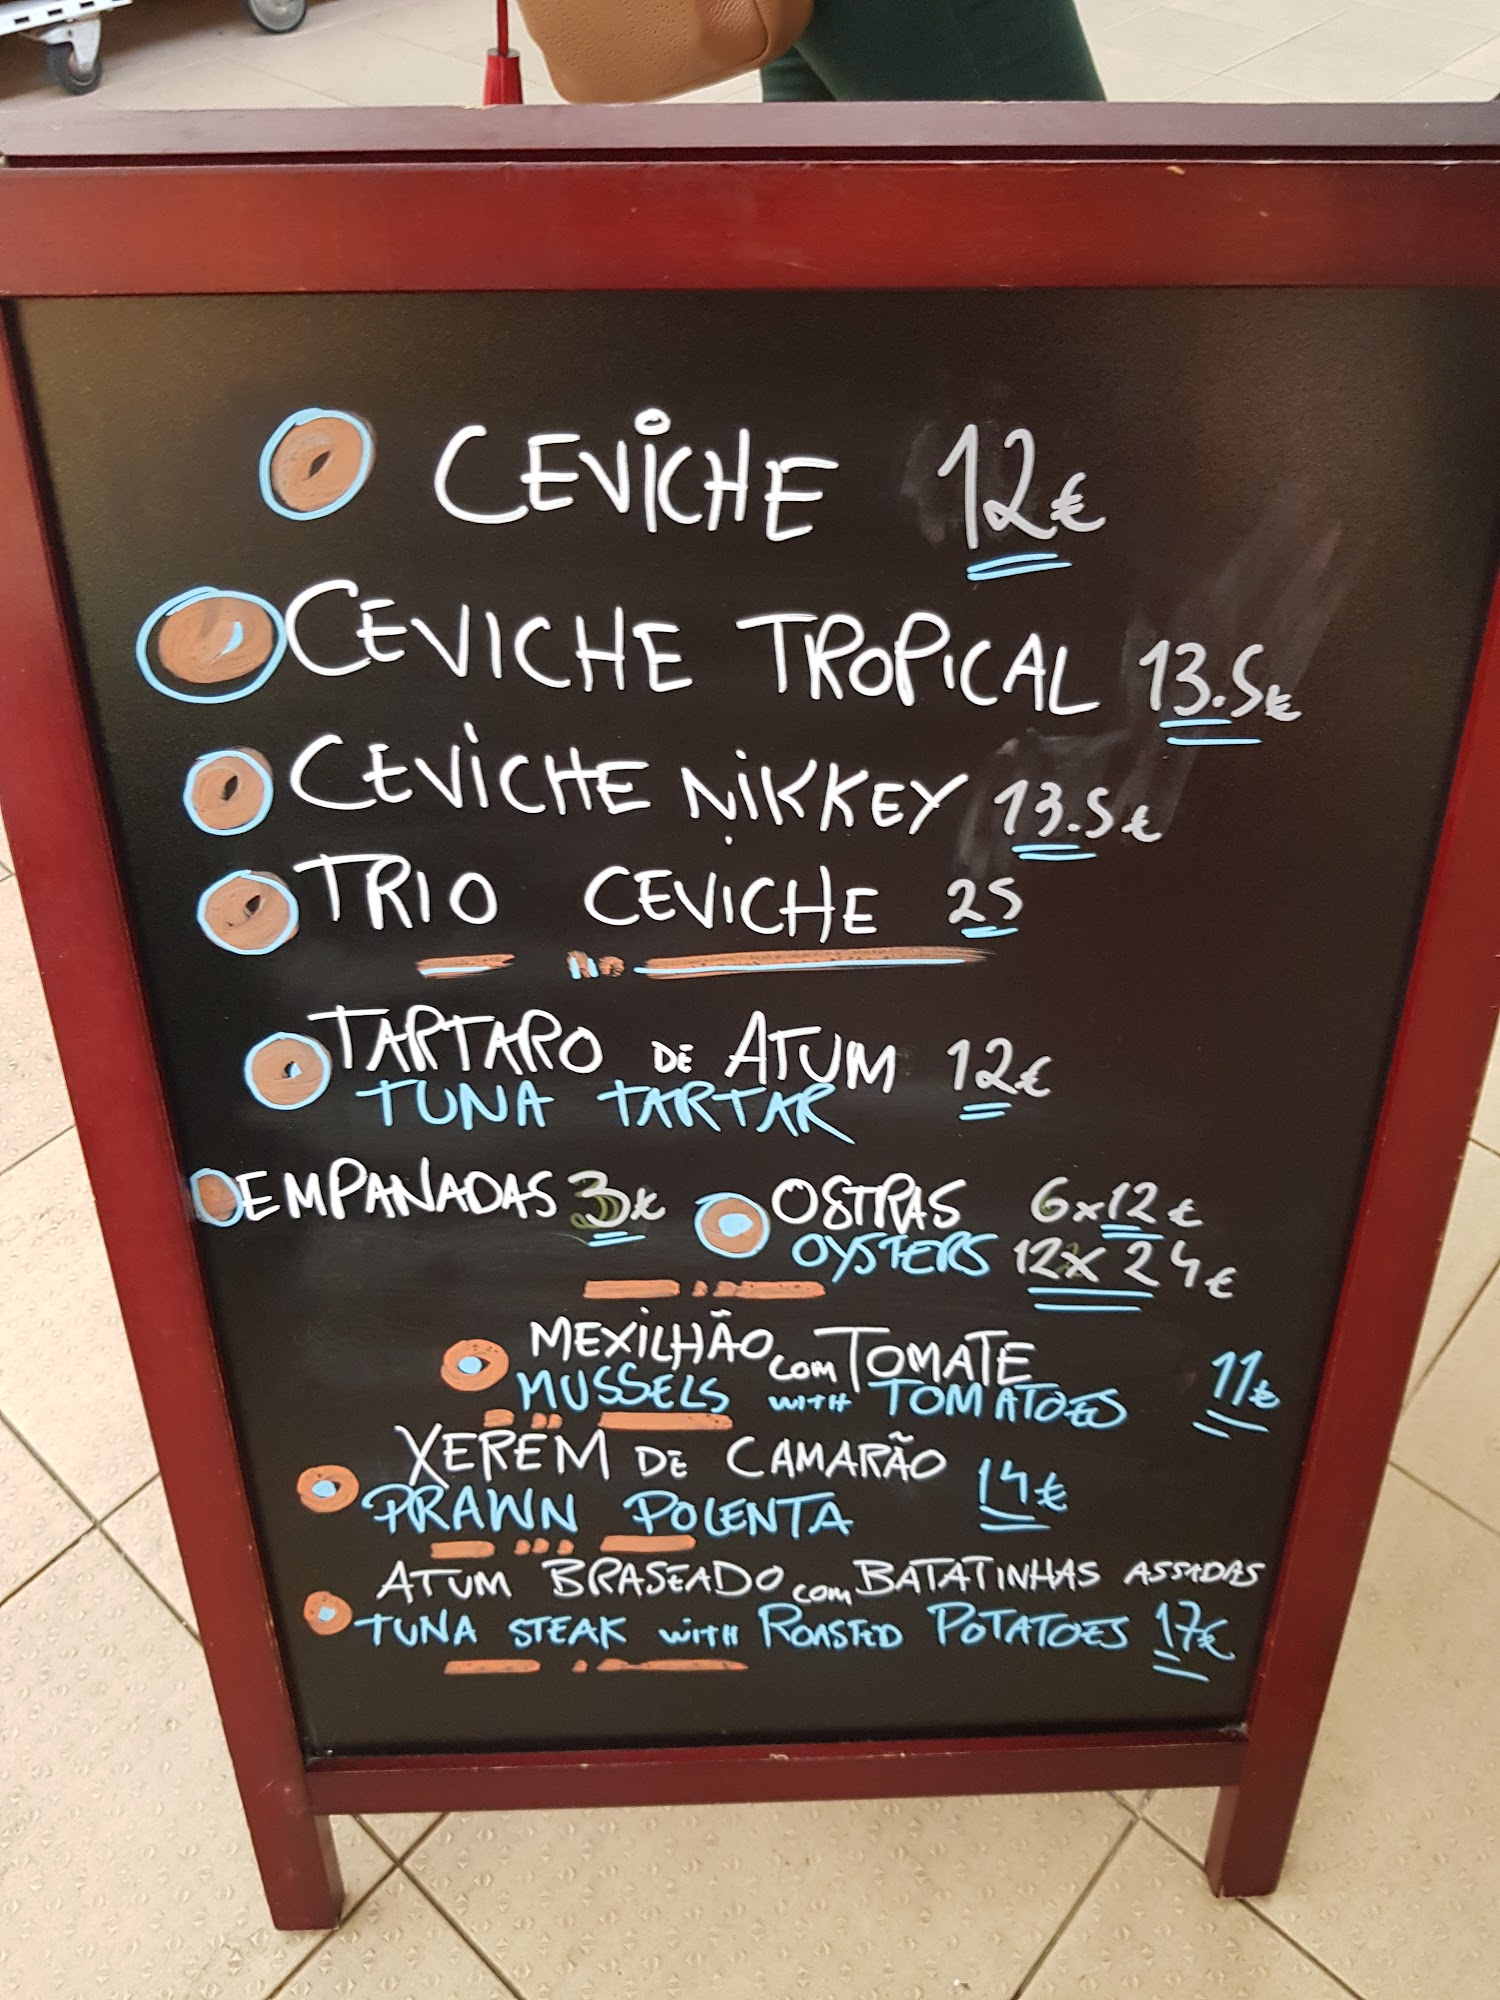 CEVICHE 12€
CEVICHE TROPICAL 13.5€
CEVICHE NIKKEY 13.5€
TRIO CEVICHE 25
TARTARO DE ATUM 12€
TUNA TARTAR
EMPANADAS 3€
OSTRAS 6x12€
OYSTERS 12x24€
MEXILHÃO COM TOMATE
MUSSELS WITH TOMATOES 11€
XEREM DE CAMARÃO
PRAWN POLENTA 14€
ATUM BRASEADO COM BATATINHAS ASSADAS
TUNA STEAK WITH ROASTED POTATOES 17€